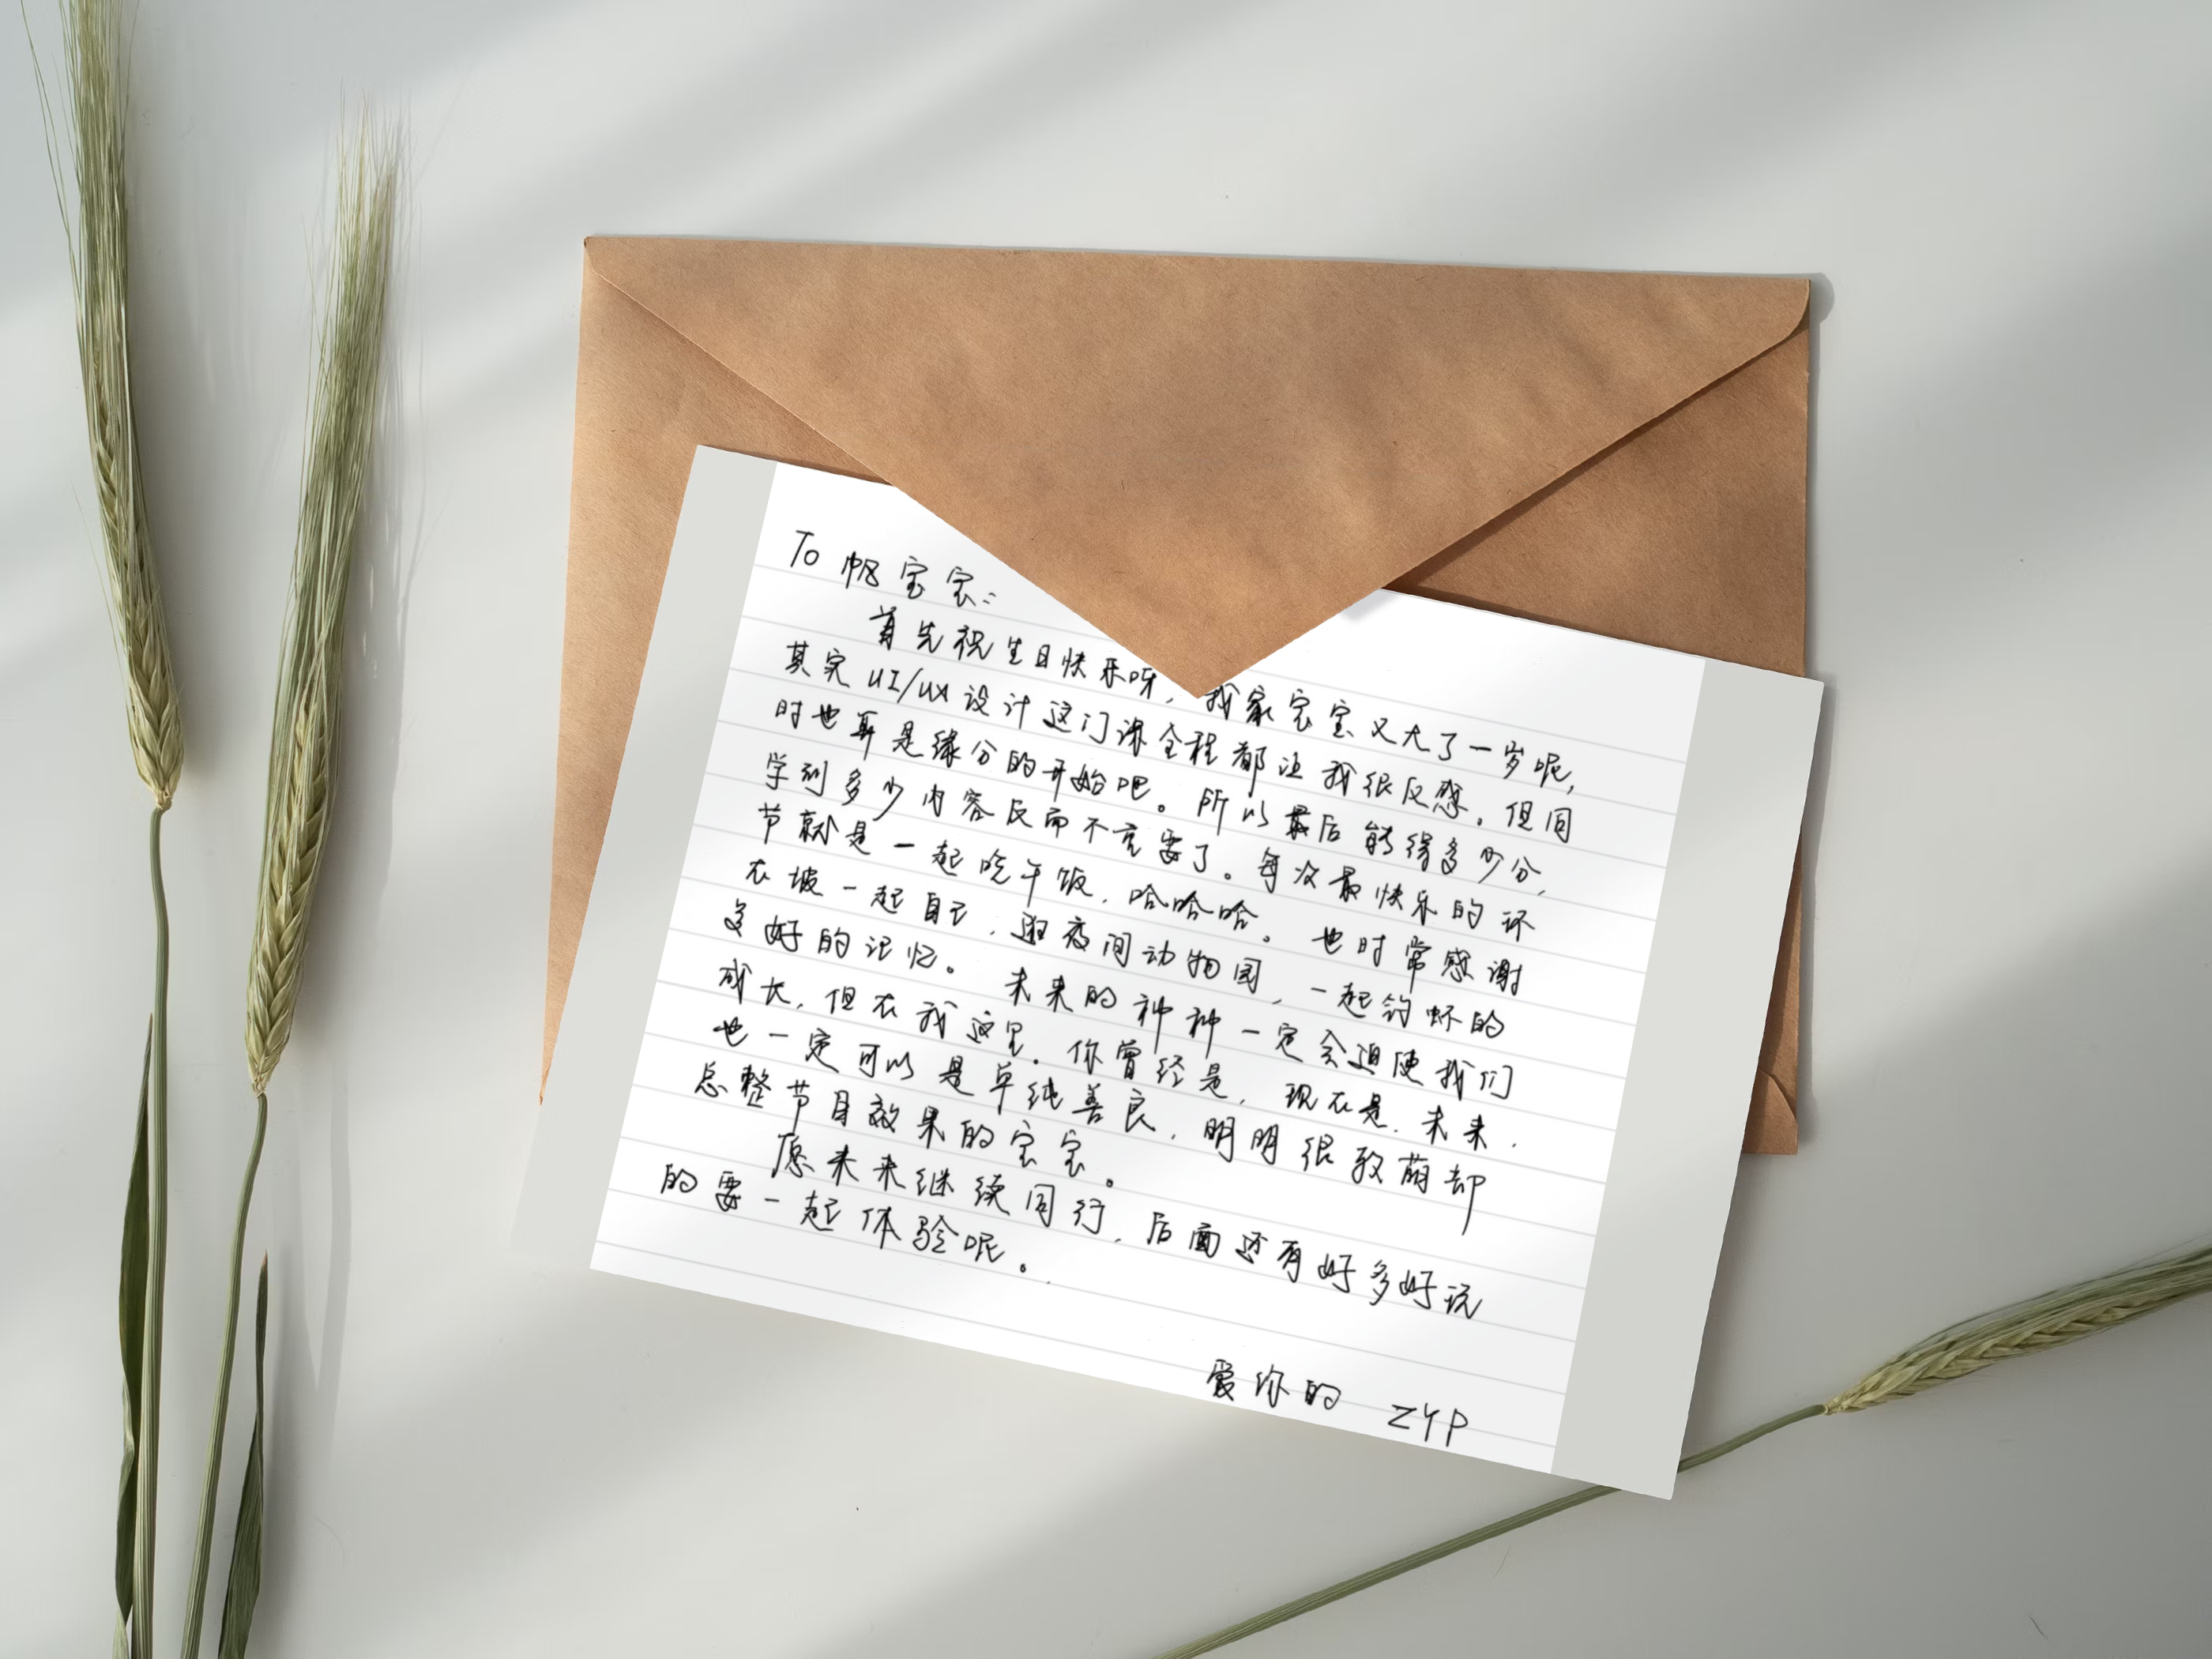 To 帆宝宝:
首先祝生日快乐呀,我家宝宝又大了一岁呢,
其实UI/UX设计这门课全程都让我很反感。但同
时也算是缘分的开始吧。所以最后能得多少分,
学到多少内容反而不重要了。每次最快乐的环
节就是一起吃午饭,哈哈哈。也时常感谢
在坡一起自己,逛夜间动物园,一起钓虾的
美好的记忆。未来的种种一定会迫使我们
成长,但在我这里。你曾经是,现在是,未来,
也一定可以是单纯善良,明明很致萌却
总整节目效果的宝宝。
愿未来继续同行,后面还有好多好玩
的要一起体验呢。
爱你的 ZYP